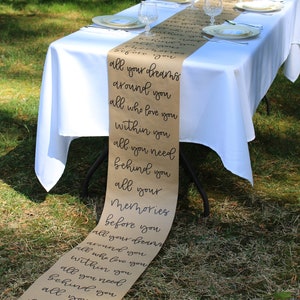 before you
all your dreams
around you
all who love you
within you
all you need
behind you
all your
memories
before you
all your dreams
around you
all who love you
within you
all you need
behind you
all your